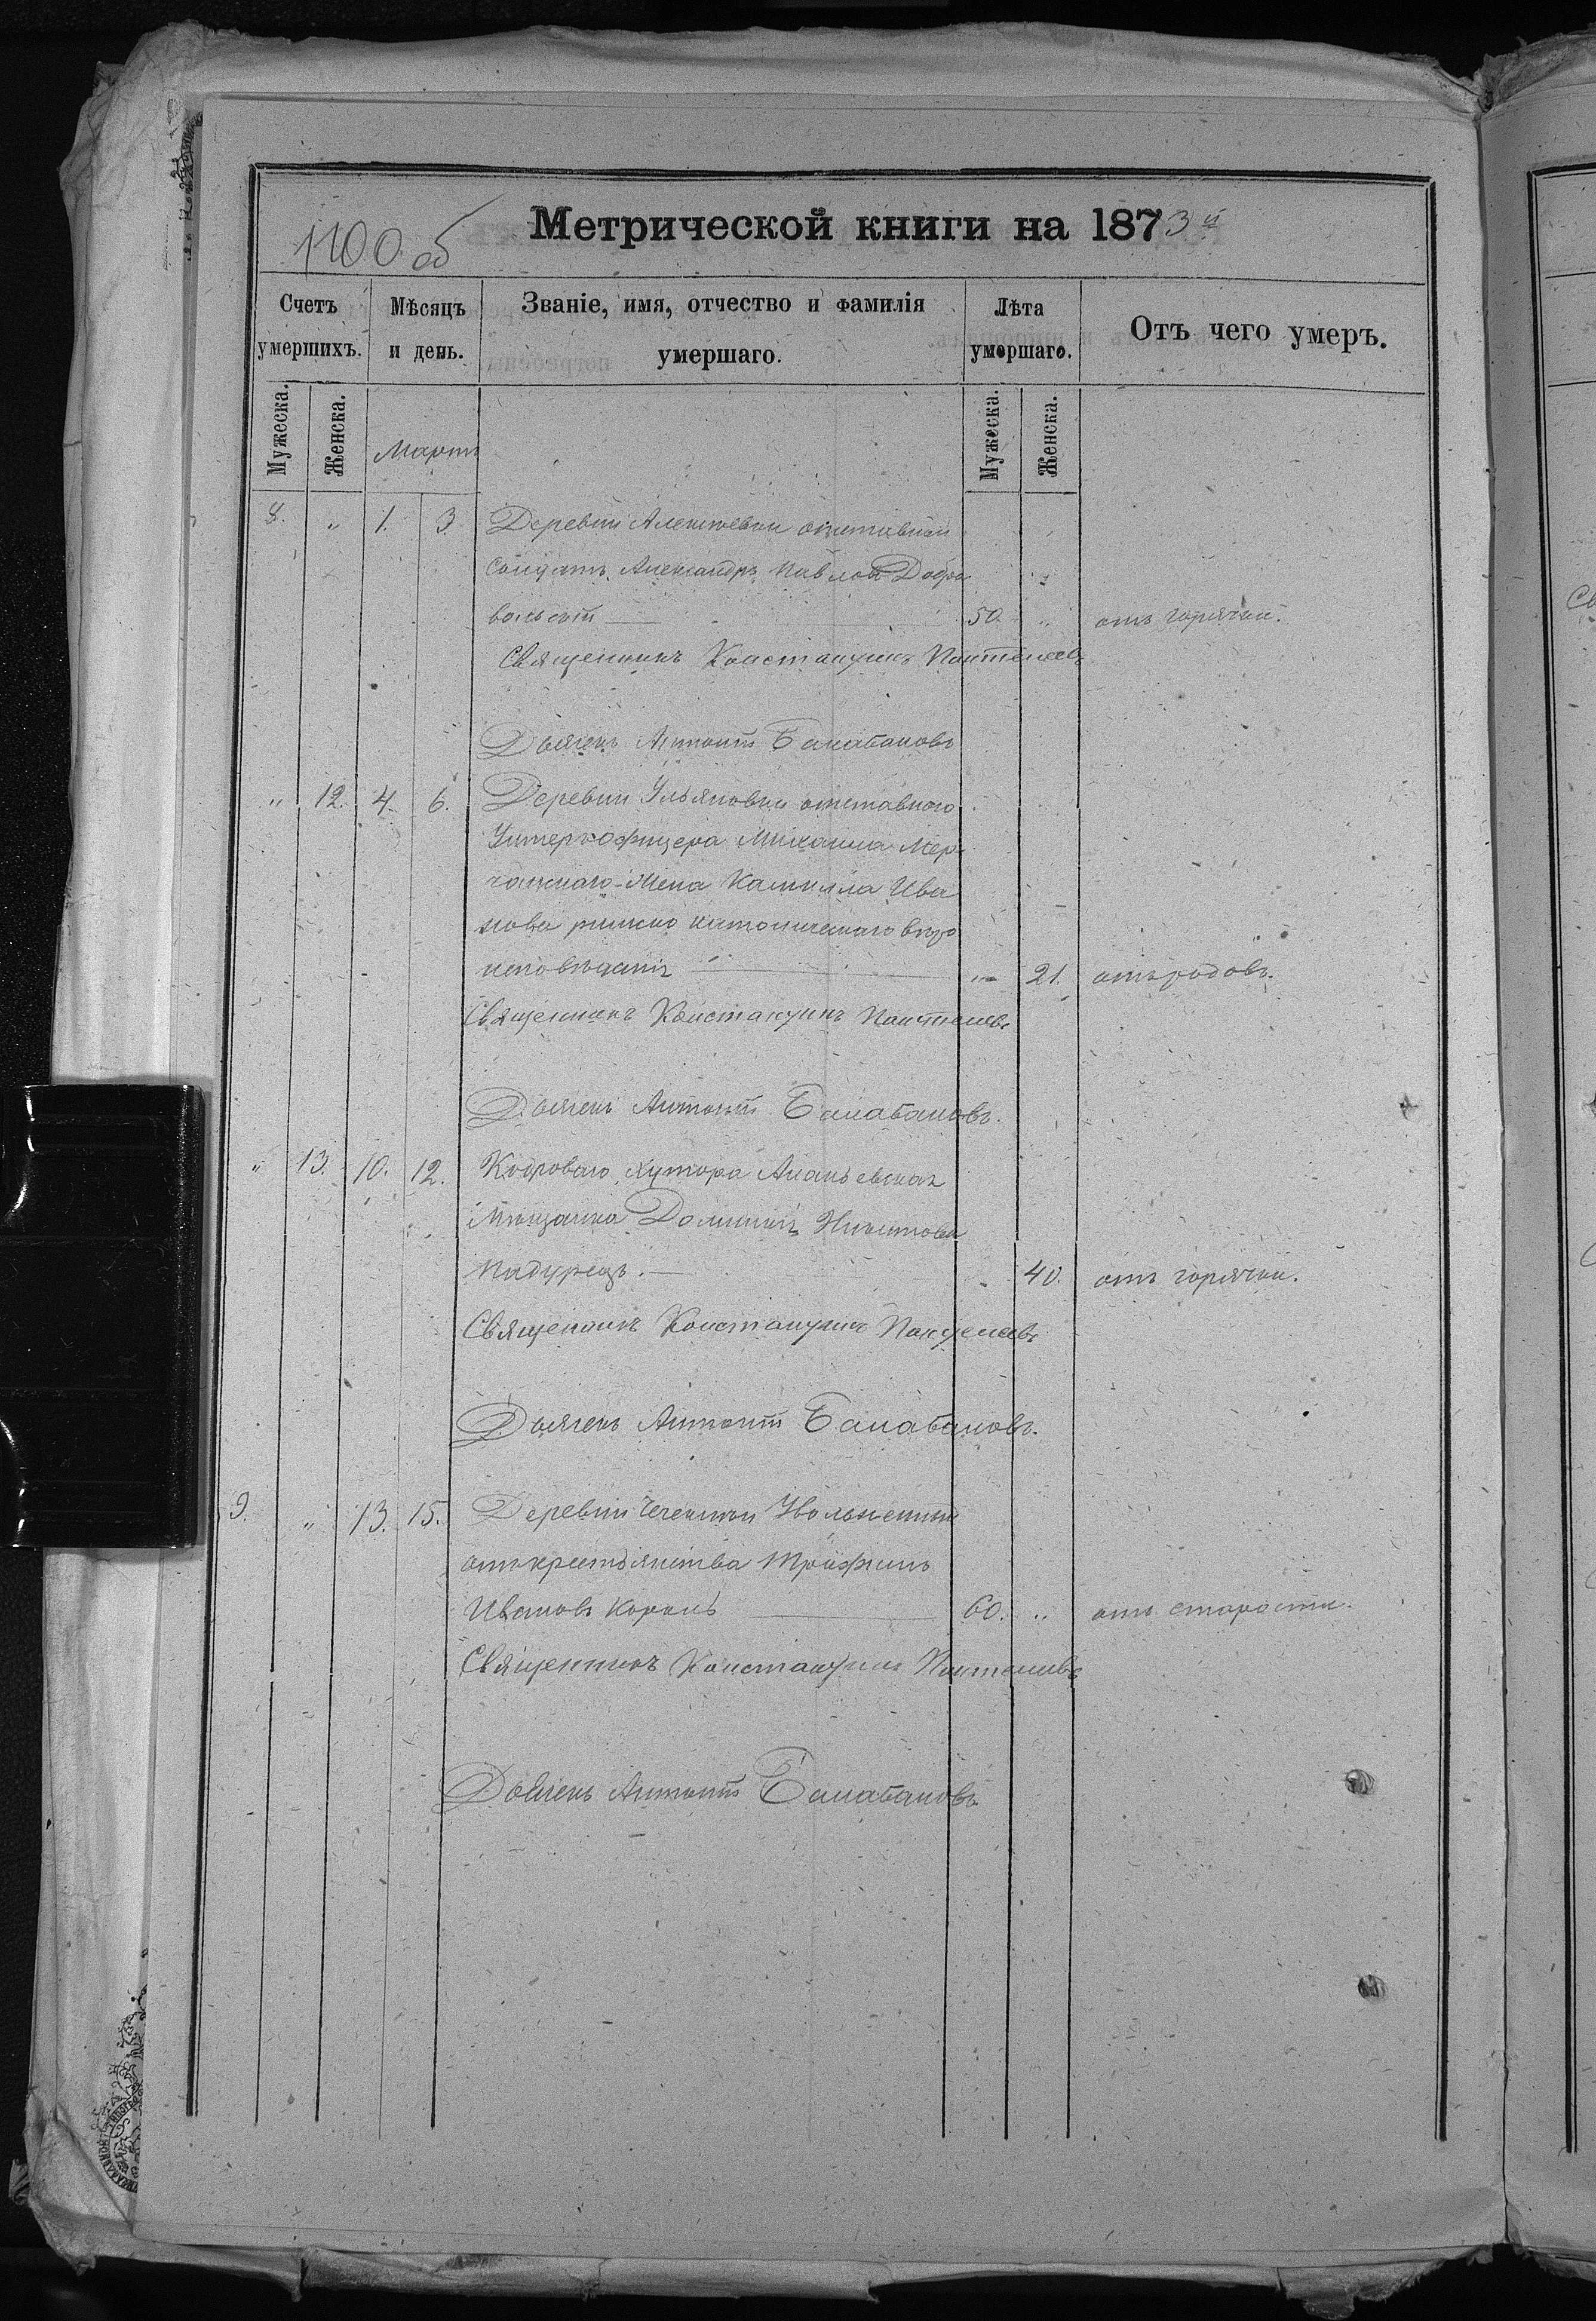 1100 об
Метрической книги на 1873й
Счетъ умершихъ. Мѣсяцъ и день. Званіе, имя, отчество и фамилія умершаго. Лѣта умершаго. Отъ чего умеръ.
Мужеска. Женска. Мартъ Мужеска. Женска.
8. " 1. 3 Деревни Алексѣевки отставной
солдатъ Александръ Павловъ Добро
вольскій 50. " отъ горячки.
Священникъ Константинъ Пантелеевъ
Дьячекъ Антоній Балабановъ
" 12. 4. 6. Деревни Ульяновки отставного
Унтеръ офицера Михаила Мер-
жена Камилла Ива
нова римско католическаго вѣро
исповѣданія " 21. отъ родовъ.
Священникъ Константинъ Пантелеевъ
Дьячекъ Антоній Балабановъ.
" 13. 10. 12. хутора Ананьевская
Мѣщанка Домникія Никитова
Падурецъ. " 40. отъ горячки.
Священникъ Константинъ Пантелеевъ
Дьячекъ Антоній Балабановъ.
9. " 13. 15. Деревни Уволненный
отъ крестьянства Трофимъ
Ивановъ Король 60. " отъ старости.
Священникъ Константинъ Пантелеевъ
Дьячекъ Антоній Балабановъ